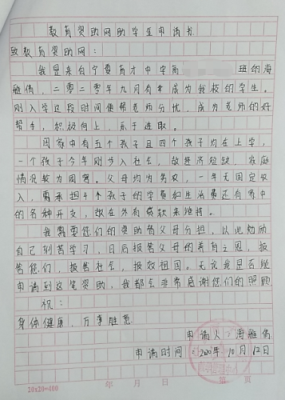 教育资助网助学生申请书
致教育资助网：
我是来自宁夏育才中学
班的
二零二零年九月有幸成为我校的学生。
刚入学这段时间成绩名列优，成为老师的好
帮手，积极向上，乐于进取。
因家中有五个孩子且四个孩子均在上学，
一个孩子今年刚步入社会，故经济短缺，家庭
情况较为困难。父母均为农民，一年无固定收
入，需承担于个孩子的学费和生活费还有家中
的各种开支，现在外有借款来维持。
我需要您们的资助替父母分担，以此勉励
自己刻苦学习，日后报答父母的养育之恩，报
答您们，报答社会，报效祖国。无论我是否能
申请到这笔资助，我都会非常感谢您们的照顾
祝：
身体健康，万事胜意
申请人：
申请时间：10月12日
20×20=400
年 月 日 第 页